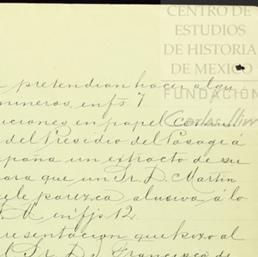 CENTRO DE
ESTUDIOS
DE HISTORIA
DE MEXICO
FUNDACIÓN
Carlos Slim
pretendian hacer algu
mineros, en fs 7
ciones en papel comun
del Presidio del Pasage á
paña un extracto de su
para que un Sr. D. Martin
le parezca alusiva á lo
M en fjs 12.
presentacion que hizo al
l Sr. D. Francisco de